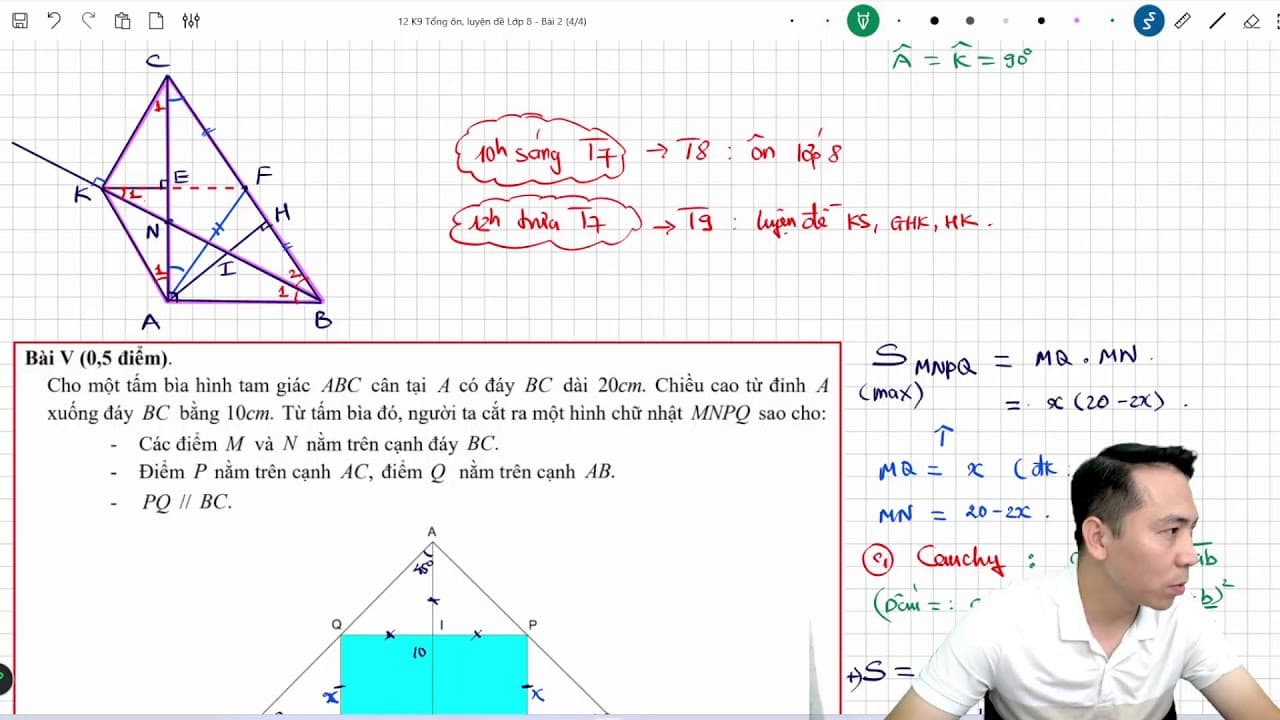 12 K9 Tổng ôn, luyện đề Lớp 8 - Bài 2 (4/4)
Â = K̂ = 90°
C
1
K
1
E
F
N
H
I
1
2
1
A
B
10h sáng T7 → T8 : ôn lớp 8
12h trưa T7 → T9 : luyện đề KS, GHK, HK.
Bài V (0,5 điểm).
Cho một tấm bìa hình tam giác ABC cân tại A có đáy BC dài 20cm. Chiều cao từ đỉnh A
xuống đáy BC bằng 10cm. Từ tấm bìa đó, người ta cắt ra một hình chữ nhật MNPQ sao cho:
- Các điểm M và N nằm trên cạnh đáy BC.
- Điểm P nằm trên cạnh AC, điểm Q nằm trên cạnh AB.
- PQ // BC.
A
45°
Q
I
P
10
x
x
S MNPQ = MQ . MN .
(max)
= x (20 - 2x) .
↑
MQ = x (đk
MN = 20 - 2x .
C1 Cauchy :
(Dấu = :
b)²
+) S =